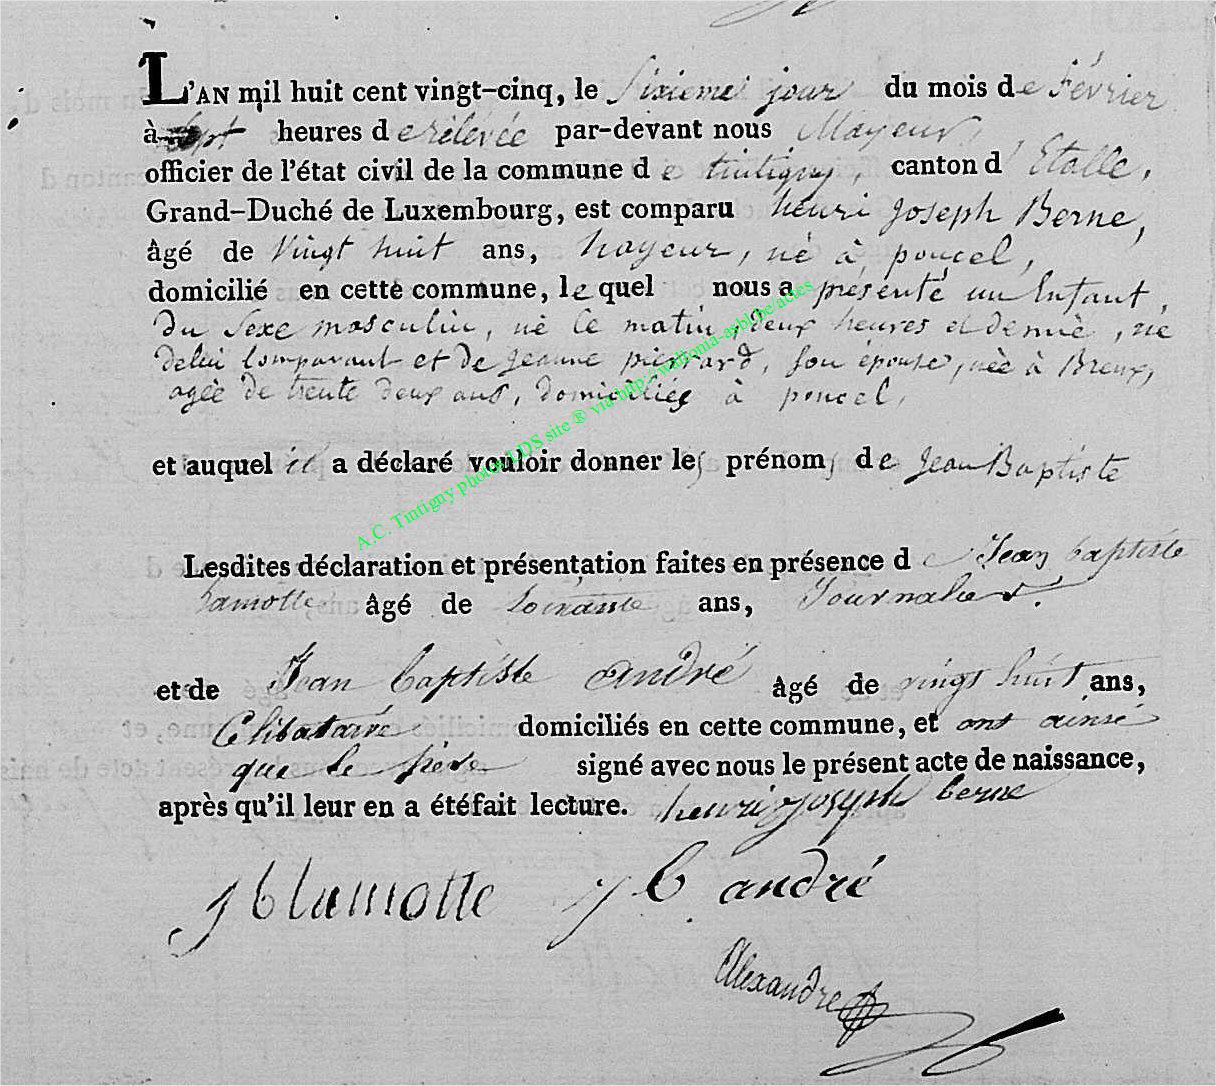 L'AN mil huit cent vingt-cinq, le Sixieme jour du mois de Février
à sept heures de rélévée par-devant nous Mayeur,
officier de l'état civil de la commune de tintigny, canton d'Etalle,
Grand-Duché de Luxembourg, est comparu henri Joseph Berne,
âgé de Vingt huit ans, né à poncel,
domicilié en cette commune, le quel nous a présenté un Enfant,
du Sexe masculin, né le matin, deux heures et demie, né
delui Comparant et de jeanne pierrard, son épouse, née à Breux,
agée de trente deux ans, domiciliée à poncel,
et auquel il a déclaré vouloir donner les prénoms de Jean Baptiste
Lesdites déclaration et présentation faites en présence de Jean baptiste
Lamotte, âgé de Soixante ans, Journalier.
et de Jean baptiste andré âgé de vingt huit ans,
Célibataire domiciliés en cette commune, et ont ainsi
que le père signé avec nous le présent acte de naissance,
après qu'il leur en a étéfait lecture. henri joseph berne
J b lamotte j b andré
Alexandre
A.C. Tintigny photos LDS site ® via http://wallonia-asbl.be/actes